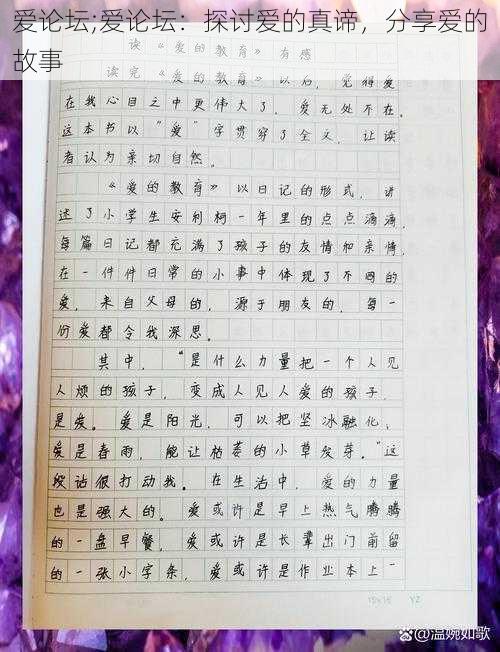 爱论坛;爱论坛：探讨爱的真谛，分享爱的
故事
读《爱的教育》有感
读完《爱的教育》以后，觉得爱
在我心目之中更伟大了，爱无处不在。
这本书以"爱"字贯穿了全文，让读
者认为亲切自然。
《爱的教育》以日记的形式，讲
述了小学生安利柯一年里的点点滴滴，
每篇日记都充满了孩子的友情和亲情，
在一件件日常的小事中体现了不同的
爱，来自父母的，源于朋友的，每一
份爱都令我深思。
其中，"是什么力量把一个人见
人烦的孩子，变成人见人爱的孩子，
是爱。爱是阳光，可以把坚冰融化，
爱是春雨，能让枯萎的小草发芽。"这
段话很打动我。在生活中，爱的力量
也是强大的。爱或许是早上热气腾腾
的一盘早餐，爱或许是长辈出门前留
的一张小字条，爱或许是作业本上一
15×15 YZ
@温婉如歌